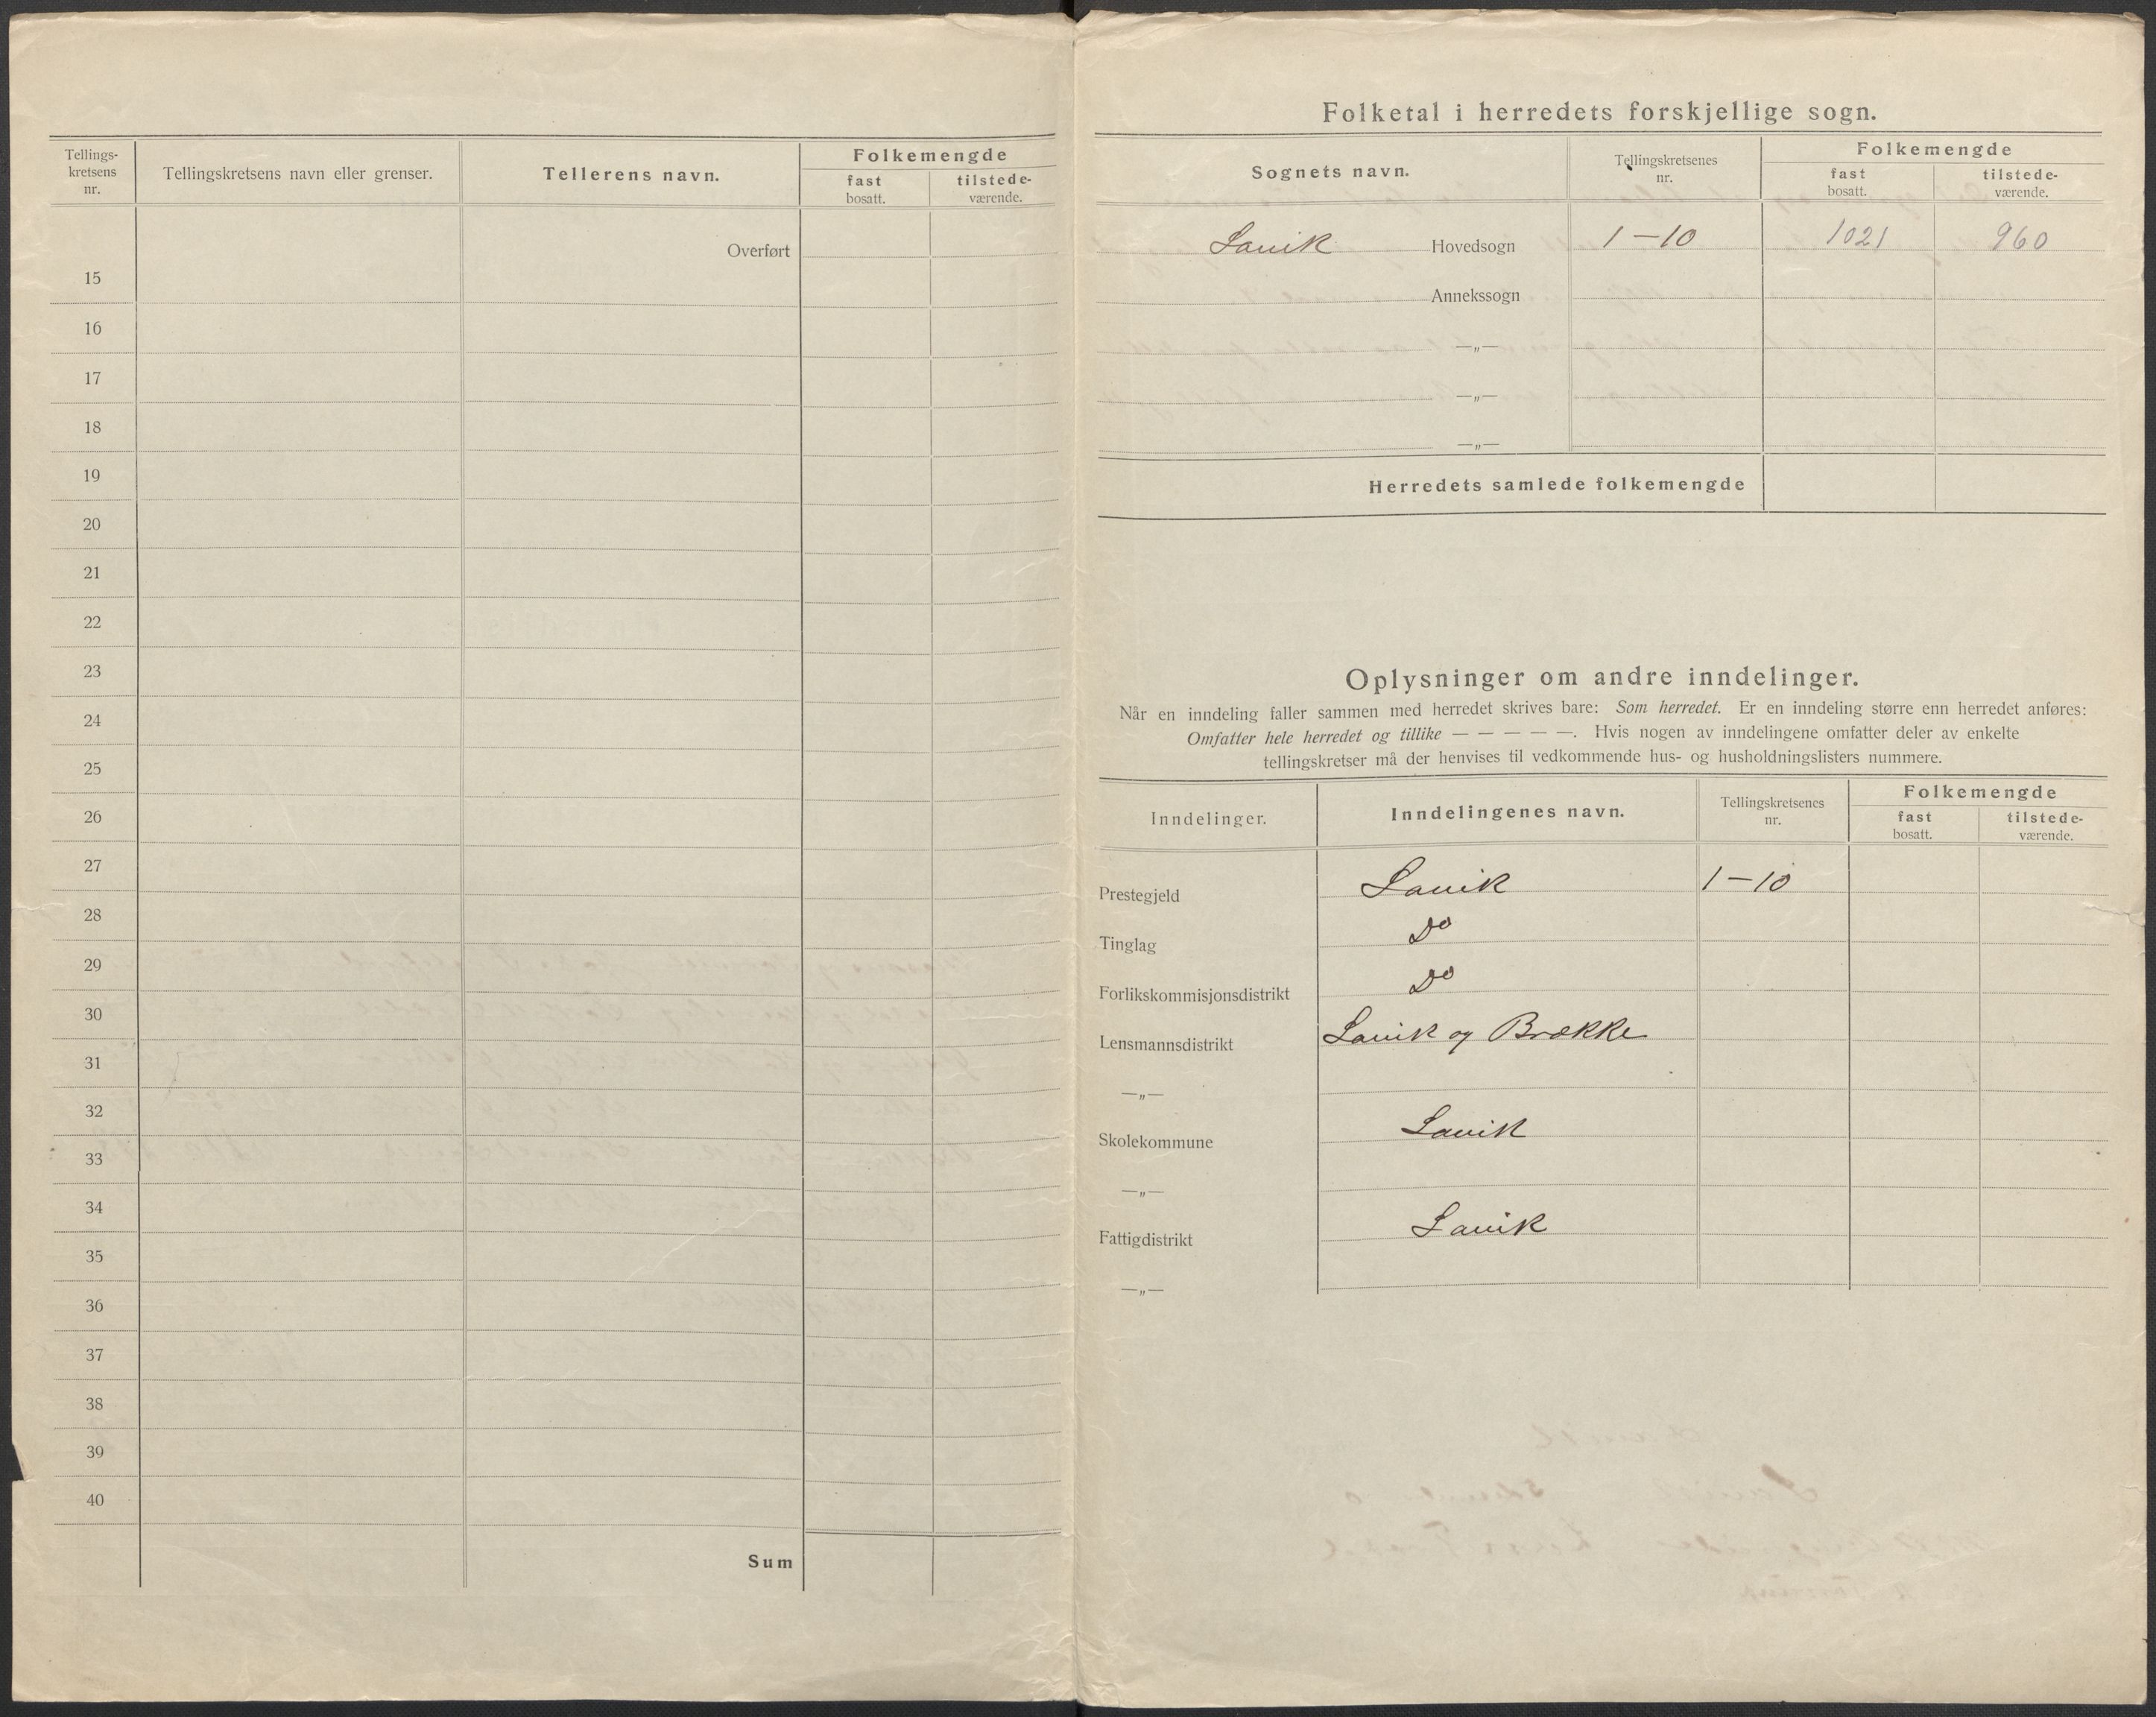 Tellings-
kretsens
nr.
Tellingskretsens navn eller grenser.
Tellerens navn.
Folkemengde
fast
bosatt.
tilstede-
værende.
Overført
15
16
17
18
19
20
21
22
23
24
25
26
27
28
29
30
31
32
33
34
35
36
37
38
39
40
Sum
Folketal i herredets forskjellige sogn.
Sognets navn.
Tellingskretsenes
nr.
Folkemengde
fast
bosatt.
tilstede-
værende.
Lavik Hovedsogn 1-10 1021 960
Annekssogn
—„—
—„—
—„—
Herredets samlede folkemengde
Oplysninger om andre inndelinger.
Når en inndeling faller sammen med herredet skrives bare: Som herredet. Er en inndeling større enn herredet anføres:
Omfatter hele herredet og tillike — — — — —. Hvis nogen av inndelingene omfatter deler av enkelte
tellingskretser må der henvises til vedkommende hus- og husholdningslisters nummere.
Inndelinger.
Inndelingenes navn.
Tellingskretsenes
nr.
Folkemengde
fast
bosatt.
tilstede-
værende.
Prestegjeld Lavik 1-10
Tinglag Do
Forlikskommisjonsdistrikt Do
Lensmannsdistrikt Lavik og Brække
—„—
Skolekommune Lavik
—„—
Fattigdistrikt Lavik
—„—